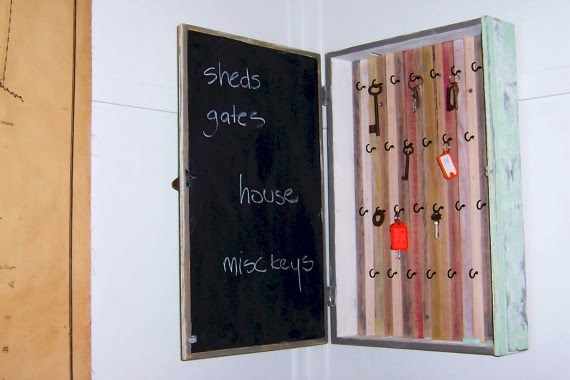 sheds
gates
house
misc keys